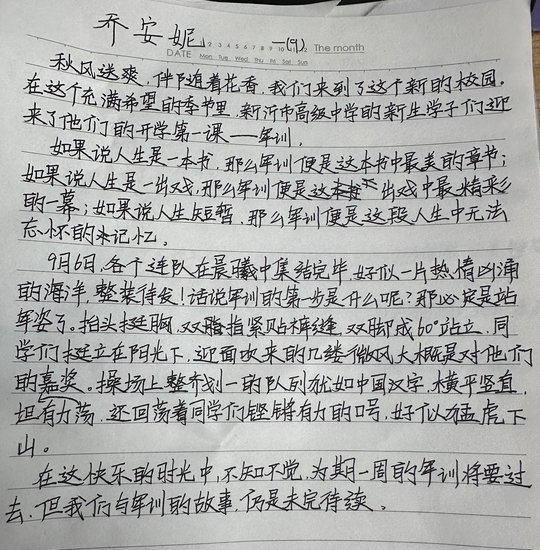 乔安妮 一(9)
1 2 3 4 5 6 7 8 9 10 11 12 The month
DATE Mon Tue Wed Thu Fri Sat Sun
秋风送爽，伴随着花香，我们来到了这个新的校园。
在这个充满希望的季节里，新沂市高级中学的新生学子们迎
来了他们的开学第一课——军训。
如果说人生是一本书，那么军训便是这本书中最美的章节；
如果说人生是一出戏，那么军训便是这出戏中最精彩
的一幕；如果说人生短暂，那么军训便是这段人生中无法
忘怀的来记忆。
9月6日，各个连队在晨曦中集结完毕，好似一片热情汹涌
的海洋，整装待发！话说军训的第一步是什么呢？那必定是站
军姿了。抬头挺胸，双脂指紧贴裤缝，双脚成60°站立，同
学们挺立在阳光下，迎面吹来的几缕微风大概是对他们
的嘉奖。操场上整齐划一的队列犹如中国汉字，横平竖直，
坦荡有力，还回荡着同学们铿锵有力的口号，好似猛虎下
山。
在这快乐的时光中，不知不觉，为期一周的军训将要过
去，但我们与军训的故事，仍是未完待续。